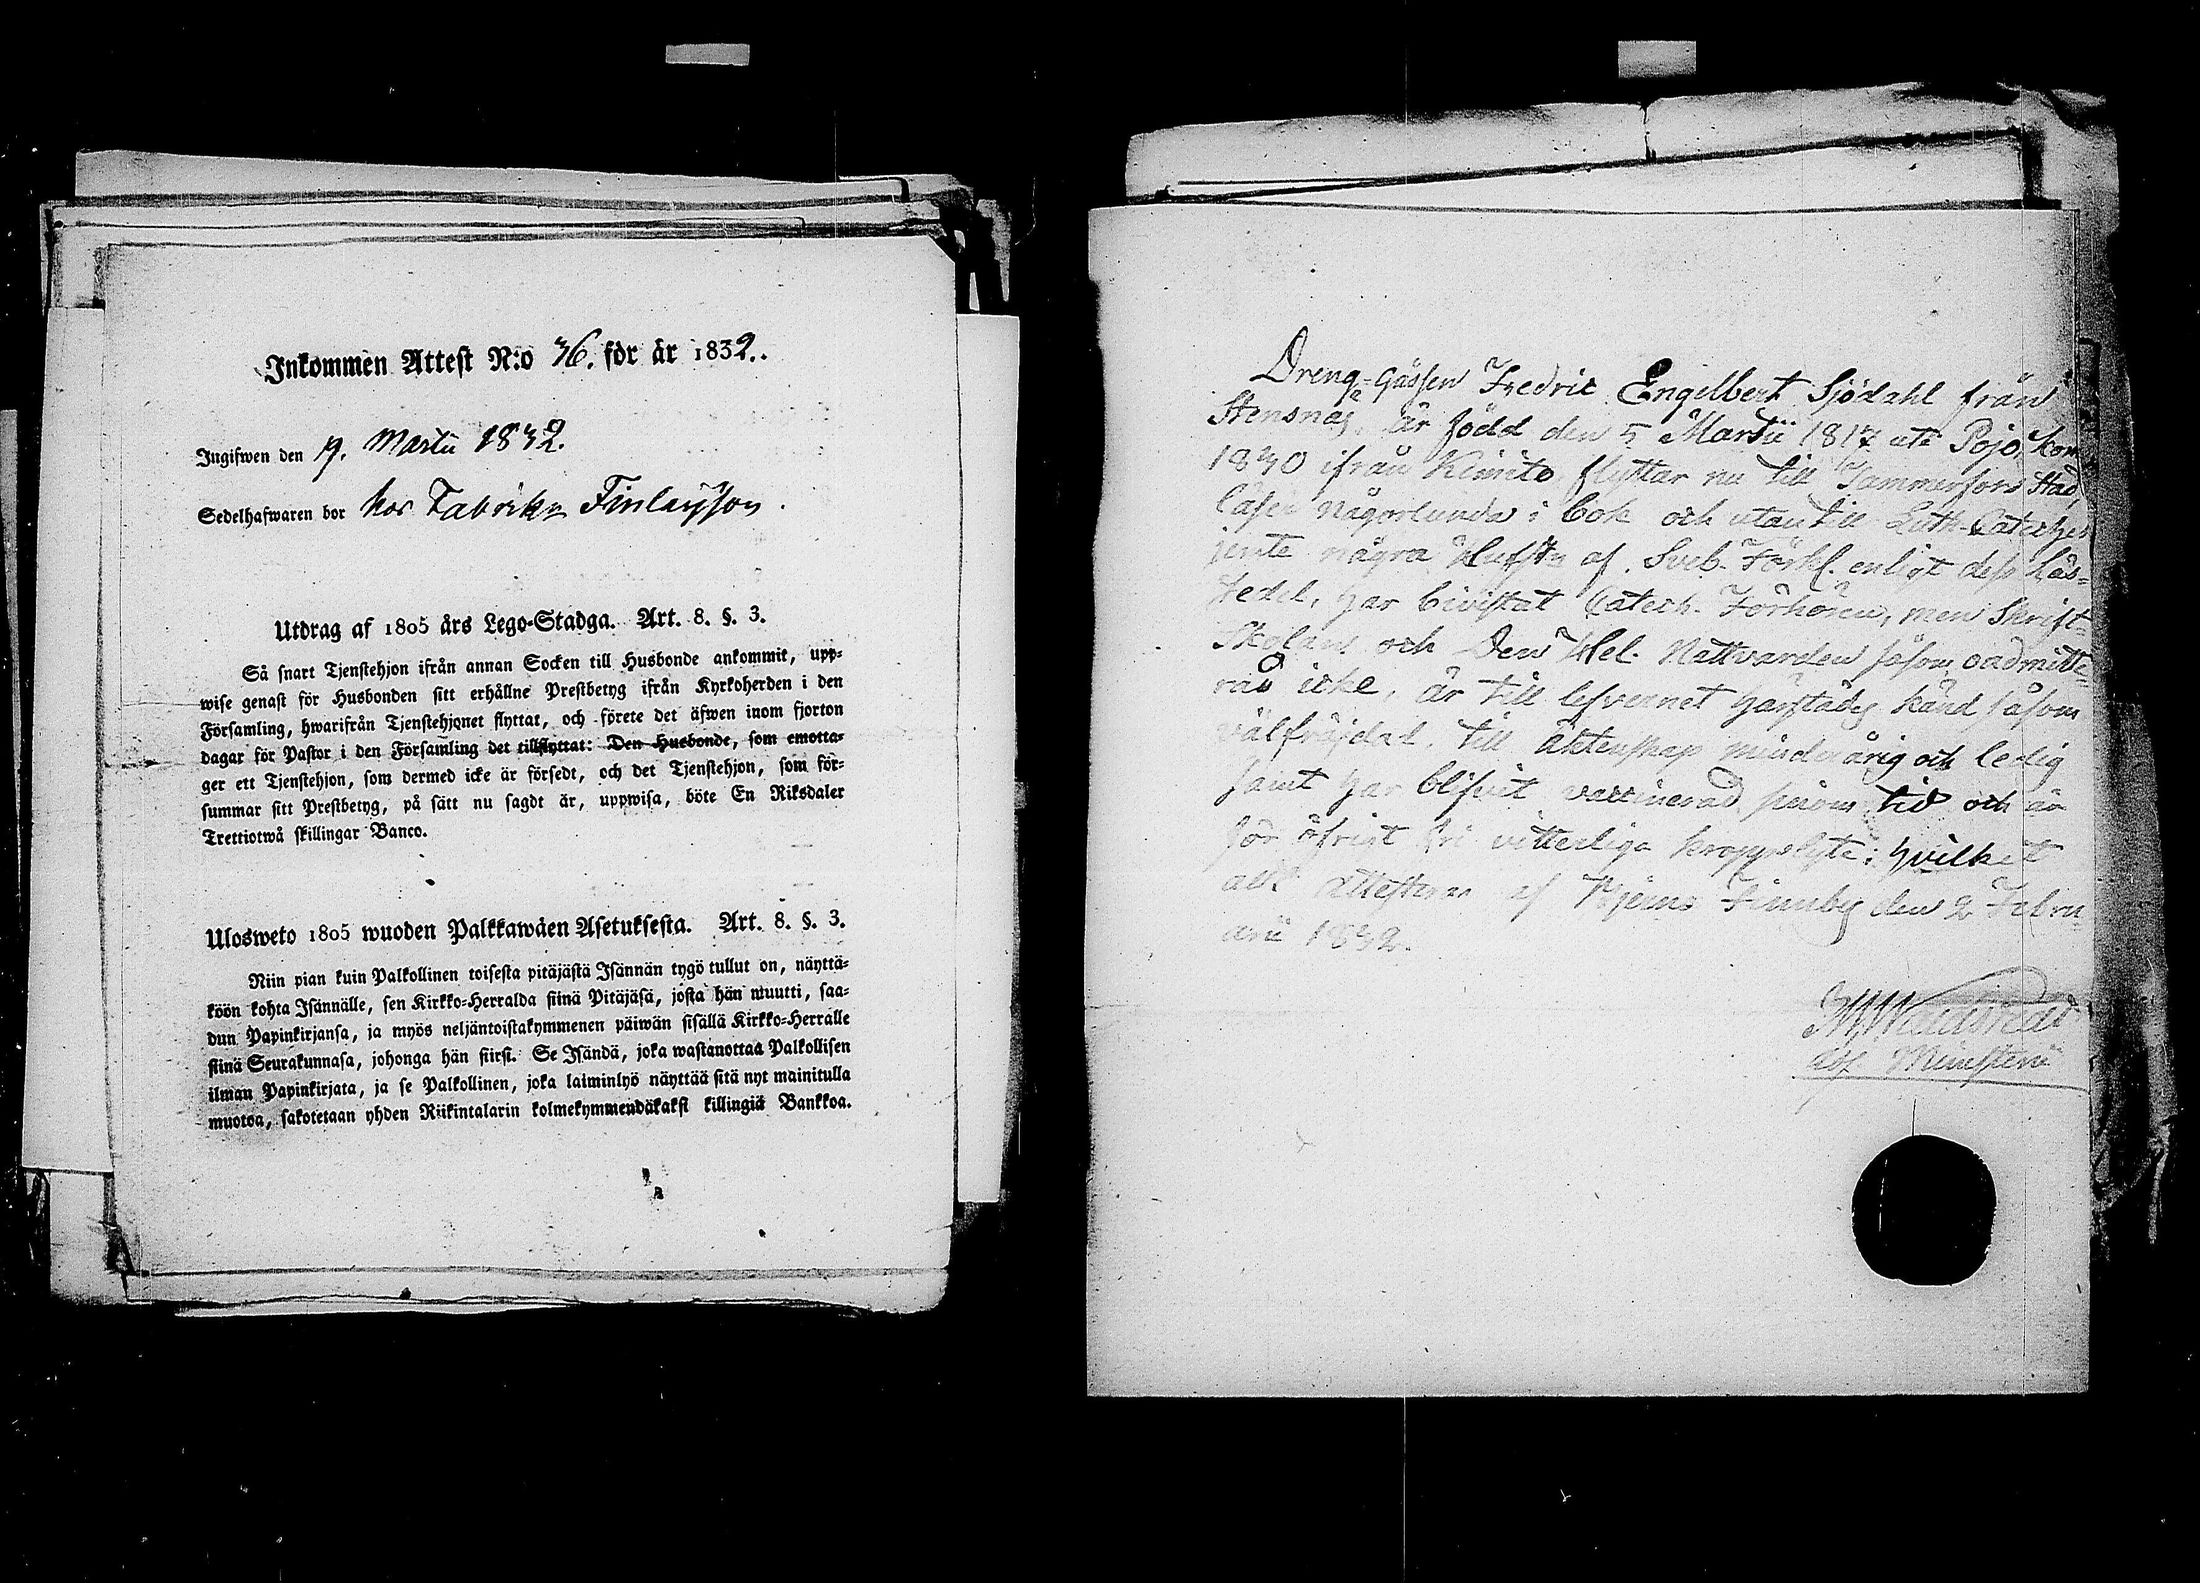 Inkommen Attest N:o 36. för år 1832.
Ingifwen den 19. Martii 1832.
Sedelhafwaren bor hos Fabrikn Finlaysson.
Utdrag af 1805 års Lego-Stadga. Art. 8. §. 3.
Så snart Tjenstehjon ifrån annan Socken till Husbonde ankommit, upp-
wise genast för Husbonden sitt erhållne Prestbetyg ifrån Kyrkoherden i den
Församling, hwarifrån Tjenstehjonet flyttat, och förete det äfwen inom fjorton
dagar för Pastor i den Församling det tillflyttat: Den Husbonde, som emotta-
ger ett Tjenstehjon, som dermed icke är försedt, och det Tjenstehjon, som för-
summar sitt Prestbetyg, på sätt nu sagdt är, uppwisa, böte En Riksdaler
Trettiotwå skillingar Banco.
Ulosweto 1805 wuoden Palkkawäen Asetuksesta. Art. 8. §. 3.
Niin pian kuin Palkollinen toisesta pitäjästä Isännän tygö tullut on, näyttä-
köön kohta Isännälle, sen Kirkko-Herralda siinä Pitäjäsä, josta hän muutti, saa-
dun Papinkirjansa, ja myös neljäntoistakymmenen päiwän sisällä Kirkko-Herralle
siinä Seurakunnasa, johonga hän siirst. Se Isändä, joka wastanottaa Palkollisen
ilman Papinkirjata, ja se Palkollinen, joka laiminlyö näyttää sitä nyt mainitulla
muotoa, sakotetaan yhden Riikintalarin kolmekymmendäkaksi killingiä Bankkoa.
Dreng-Gåssen Fredric Engelbert Sjödahl från
Stensnäs, är född den 5 Martii 1817 uti Pojo, kom
1830 ifrån Kimito, flyttar nu till Tammerfors Stad,
läser någorlunda i bok och utantill Luth. Cateches
jemte några Stycken af Sveb. Förkl. enligt dess Läs-
Sedel, har bivistat Catech. Förhören, men Skrift-
Skolan och Den Hel. Nattvarden såsom oadmitte-
rad icke, är till lefvernet härstädes känd såsom
välfräjdad, till äktenskap minderårig och ledig
samt har blifvit vaccinerad sinom tid och är
för öfrigt fri vitterliga kroppslyte; hvilket
allt attesteras af Bjerno Finnby den 2 Febru-
arii 1832.
adj. Ministerii